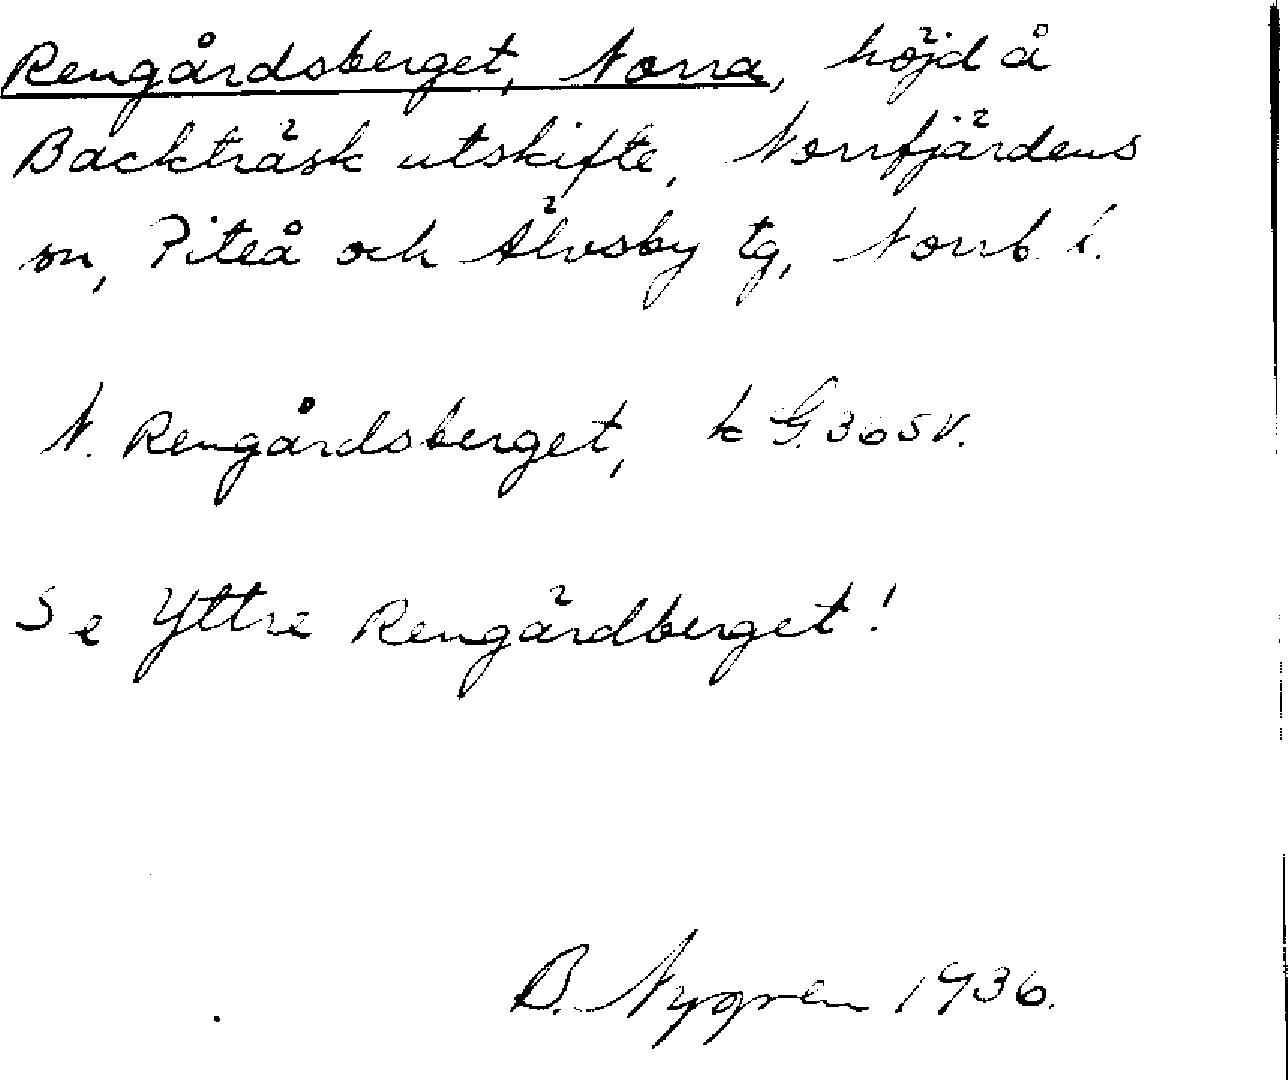 Rengårdsberget, Norra, höjd å
Backträsk utskifte, Norrfjärdens
sn, Piteå och Älvsby tg, Norrb. l.
N. Rengårdsberget, k G. 365 V.
Se Yttre Rengårdberget!
B. Nygren 1936.